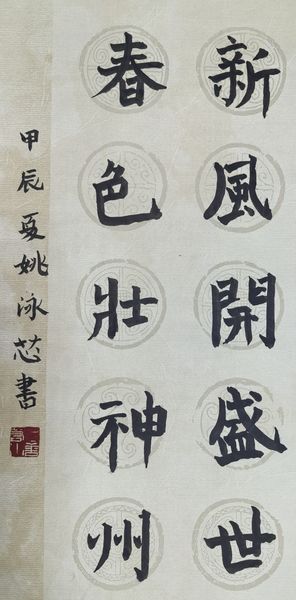 新風開盛世
春色壯神州
甲辰夏姚泳芯書